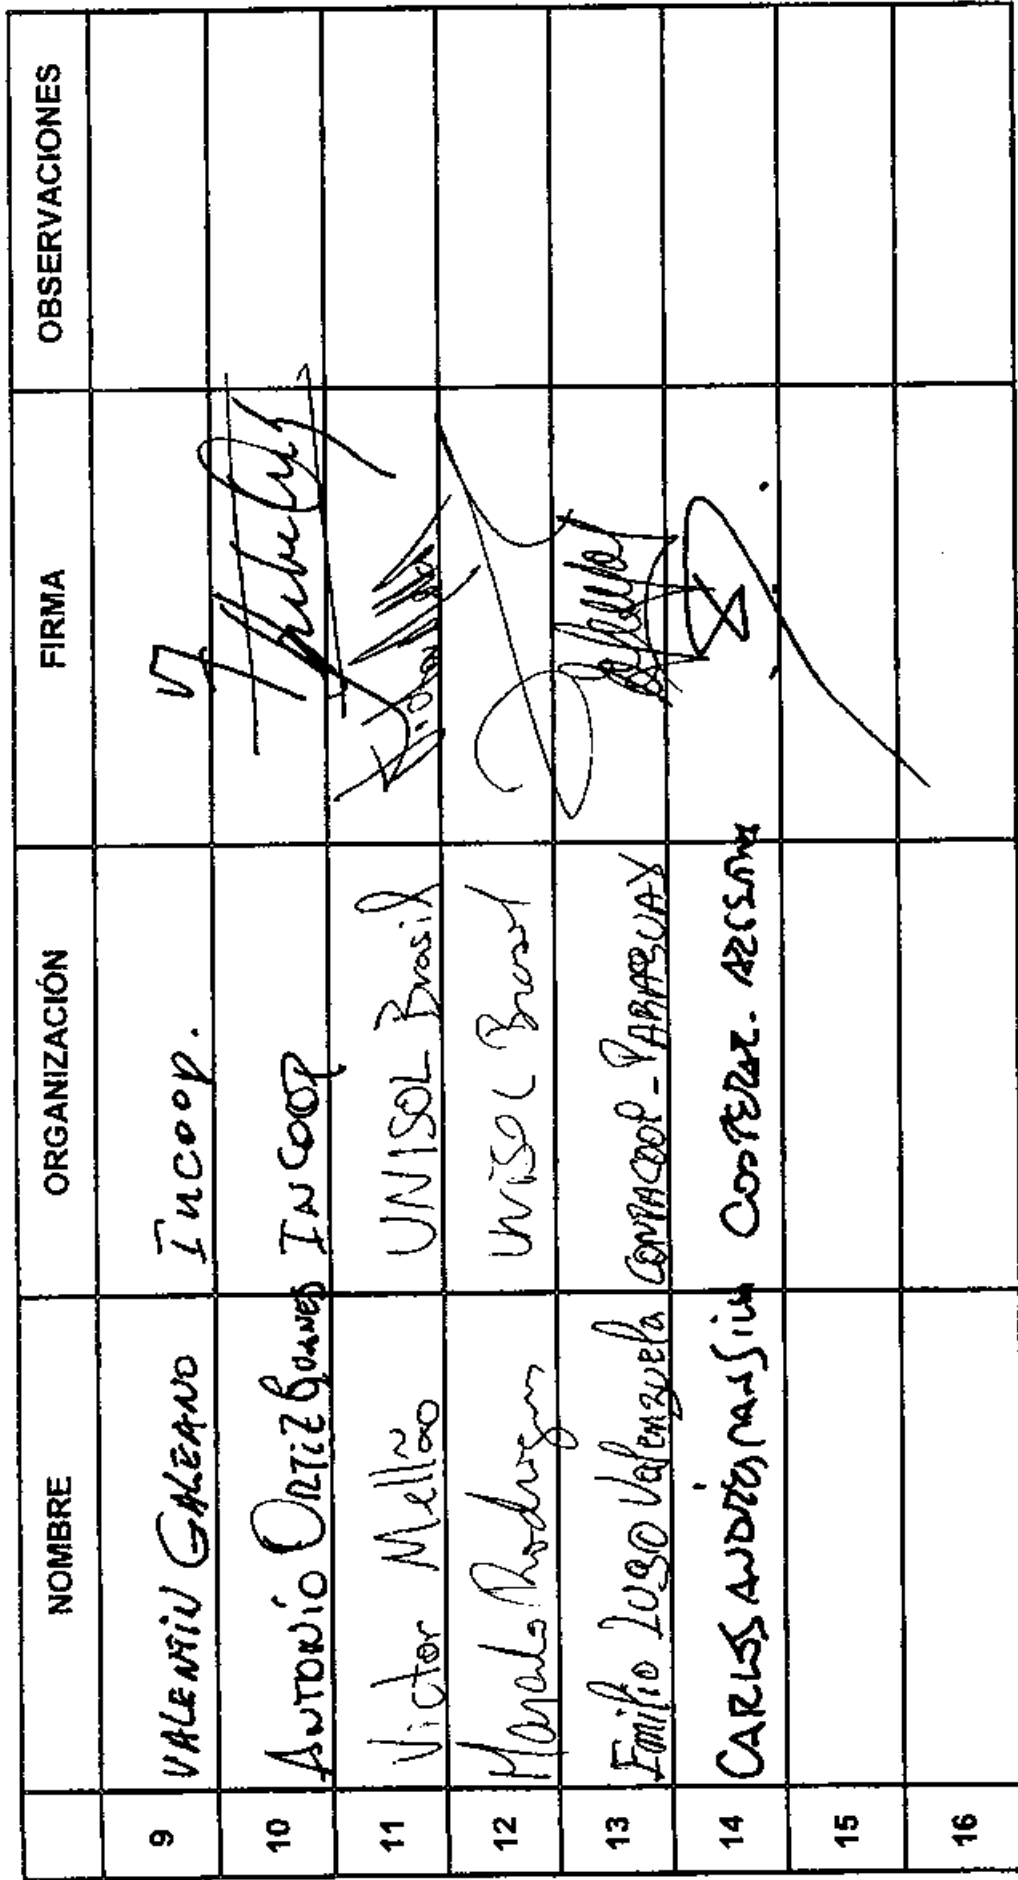 NOMBRE ORGANIZACIÓN FIRMA OBSERVACIONES
9 VALENTIN GALEANO Incoop.
10 ANTONIO ORTIZ GUANES INCOOP
11 Victor Mellão UNISOL Brasil
12 Rodrigues Unisol Brasil
13 Emilio Lugo Valenzuela CONPACOOP - PARAGUAY
14 CARLOS MANSILLA
15
16